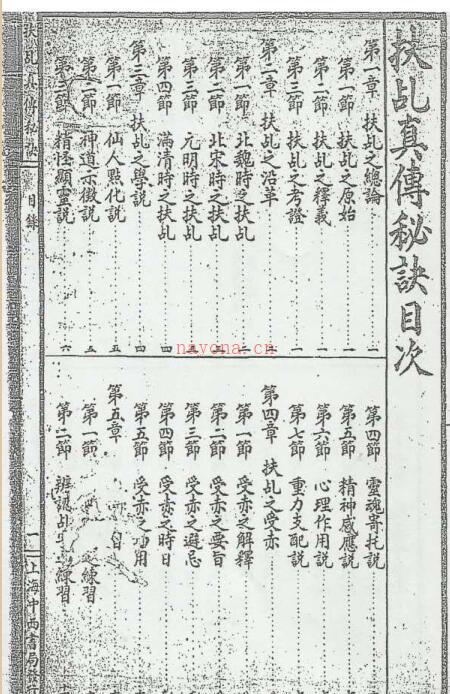 扶乩真傳秘訣目次
第一章 扶乩之總論 一
第一節 扶乩之原始 一
第二節 扶乩之釋義 一
第三節 扶乩之考證 一
第二章 扶乩之沿革
第一節 北魏時之扶乩 二
第二節 北宋時之扶乩
第三節 元明時之扶乩
第四節 滿清時之扶乩 四
第三章 扶乩之學說 四
第一節 仙人點化說 五
第二節 神道示微說 五
第三節 精怪顯靈說 六
第四節 靈魂寄托說
第五節 精神感應說
第六節 心理作用說
第七節 重力支配說
第四章 扶乩之受亦
第一節 受亦之解釋
第二節 受亦之要旨
第三節 受亦之避忌
第四節 受亦之時日
第五節 受亦之功用
第五章
第一節 練習
第二節 辨認乩 練習
扶乩真傳秘訣 目錄 一 上海中西書局發行
nayona.cn